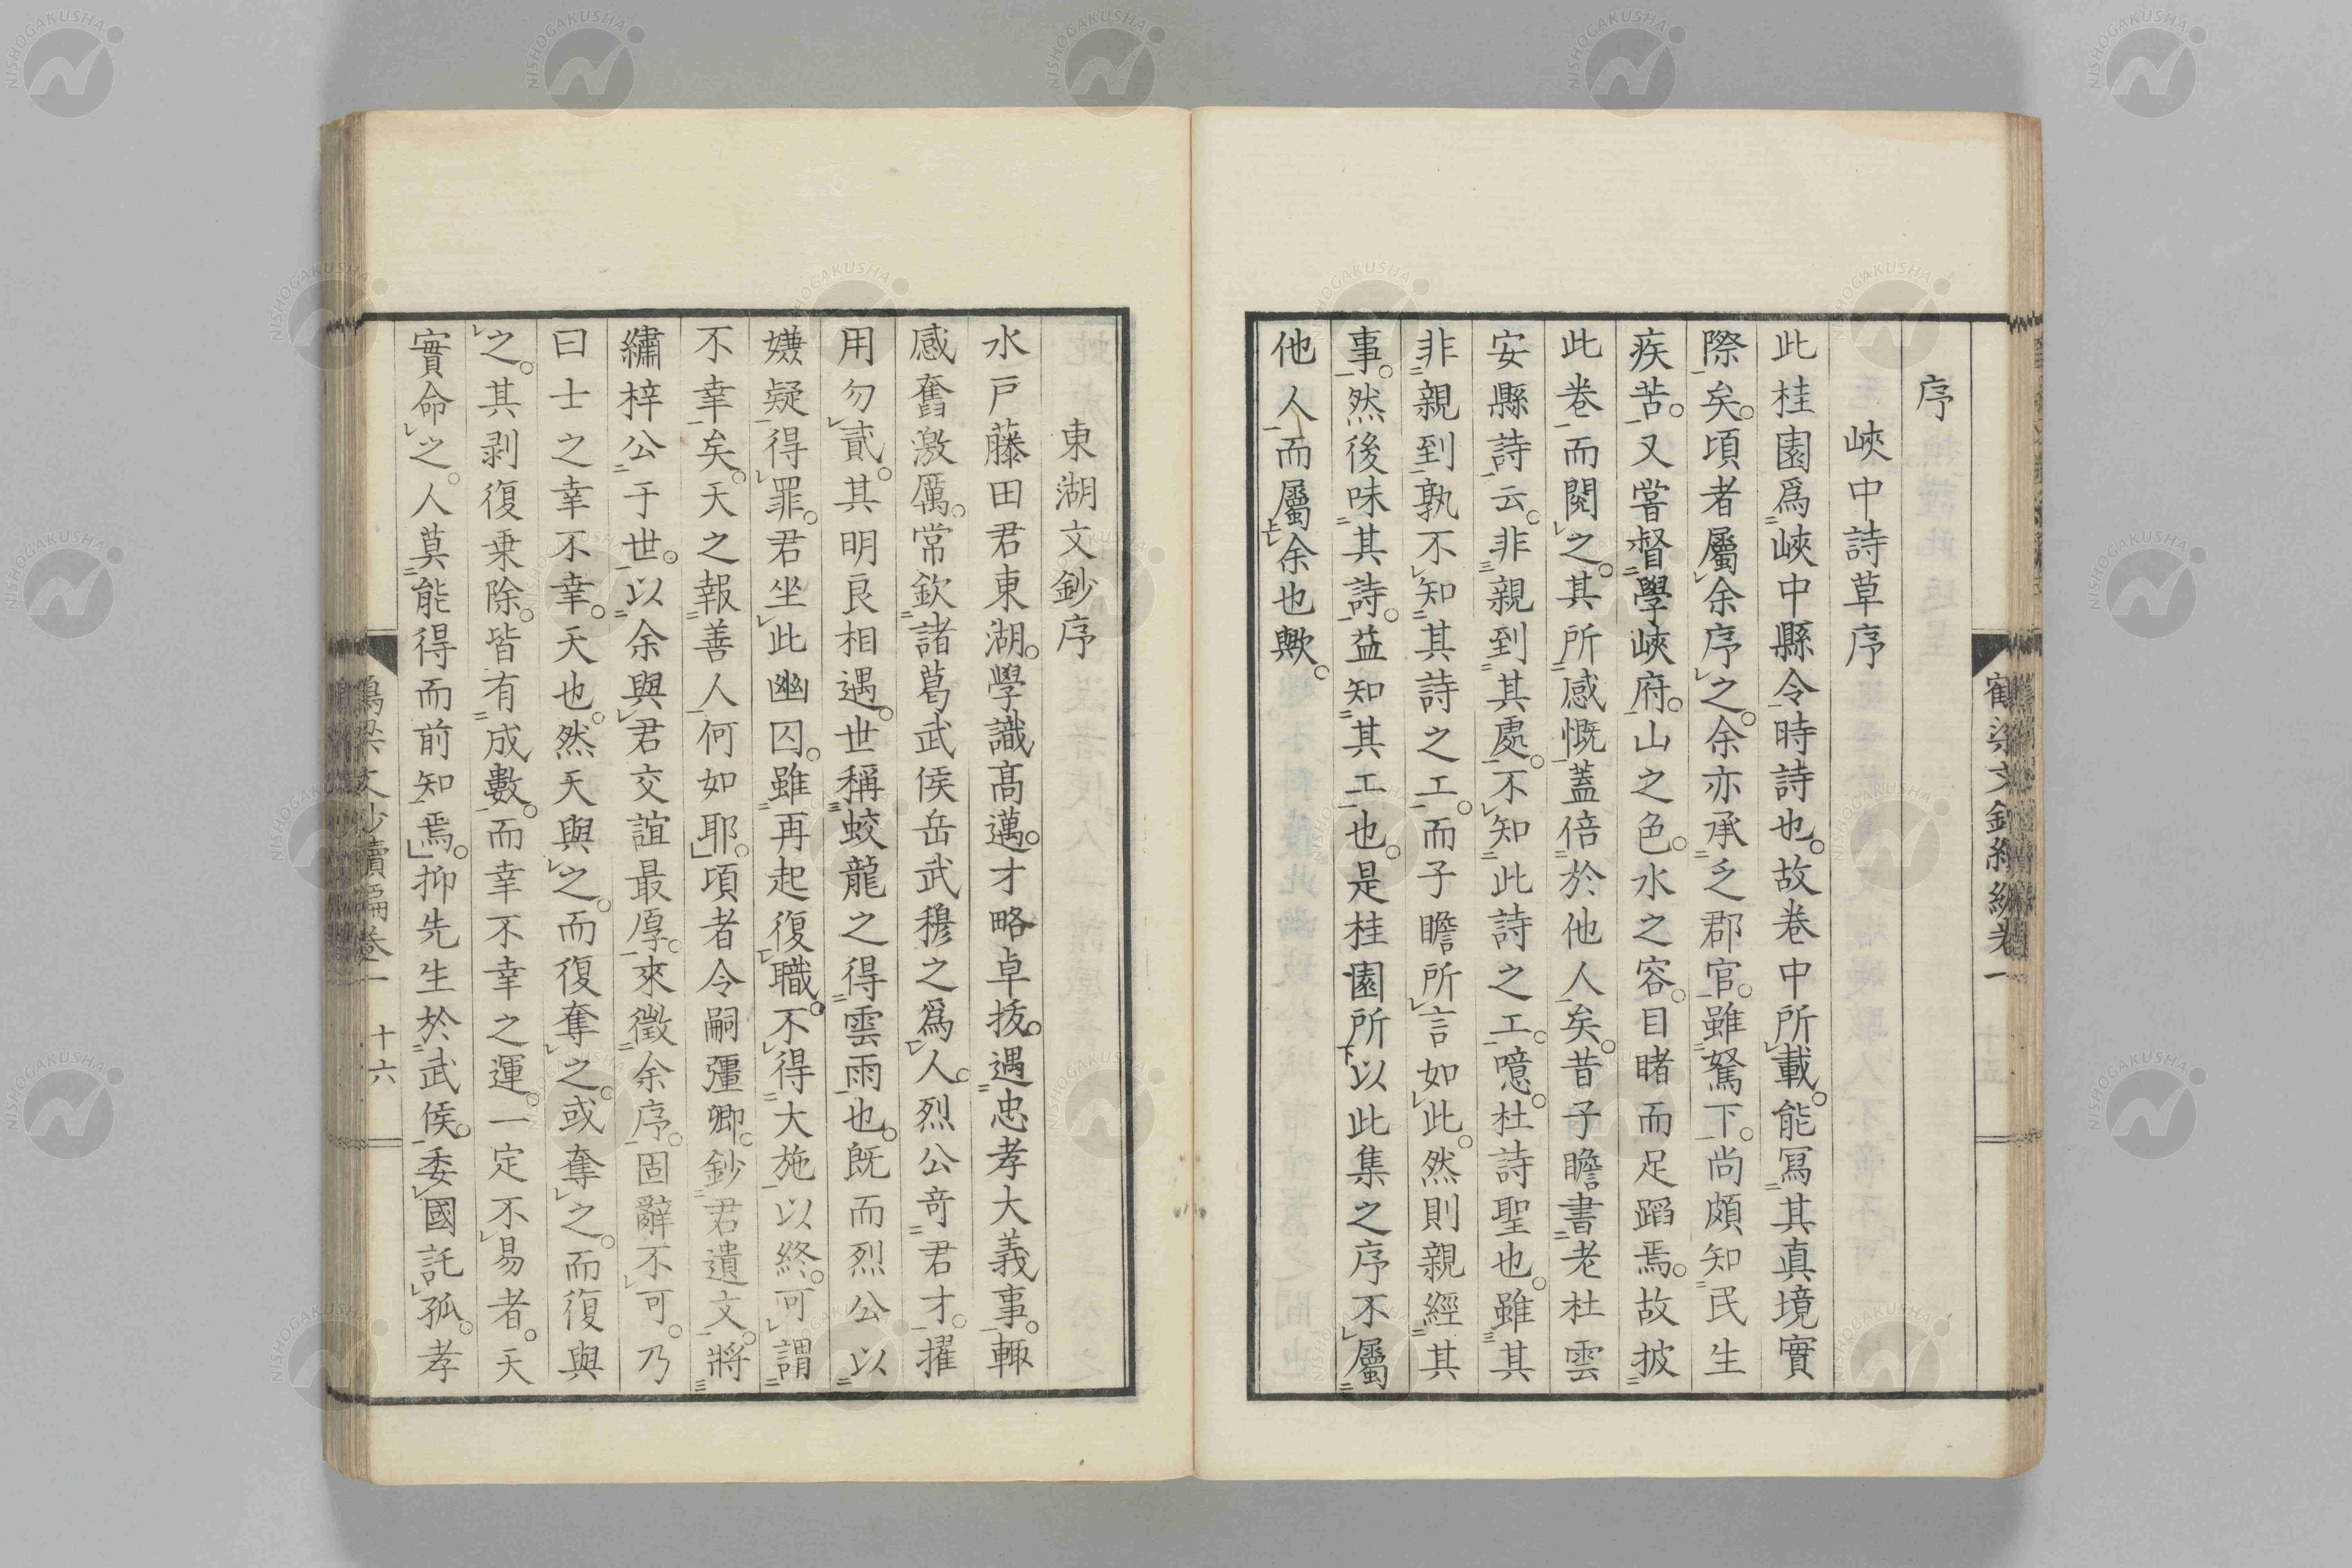 序
峽中詩草序
此桂園爲峽中縣令時詩也。故卷中所載。能冩其真境實
際矣。頃者屬余序之。余亦承乏郡官。雖駑下。尚頗知民生
疾苦。又甞督學峽府。山之色。水之容。目睹而足蹈焉。故披
此卷而閱之。其所感慨蓋倍於他人矣。昔子瞻書老杜雲
安縣詩云。非親到其處。不知此詩之工。噫。杜詩聖也。雖其
非親到孰不知其詩之工。而子瞻所言如此。然則親經其
事。然後味其詩。益知其工也。是桂園所以此集之序不屬
他人而屬余也歟。
東湖文鈔序
水戸藤田君東湖。學識高邁。才略卓抜。遇忠孝大義事。輙
感奮激厲。常欽諸葛武侯岳武穆之爲人。烈公奇君才。擢
用勿貳。其明良相遇。世稱蛟龍之得雲雨也。既而烈公以
嫌疑得罪。君坐此幽囚。雖再起復職。不得大施以終。可謂
不幸矣。天之報善人何如耶。頃者令嗣彊卿。鈔君遺文。將
繡梓公于世。以余與君交誼最厚。來徵余序。固辭不可。乃
曰士之幸不幸。天也。然天與之。而復奪之。或奪之。而復與
之。其剥復乗除。皆有成數。而幸不幸之運。一定不易者。天
實命之。人莫能得而前知焉。抑先生於武侯。委國託孤。孝
鶴梁文鈔續編卷一
十六